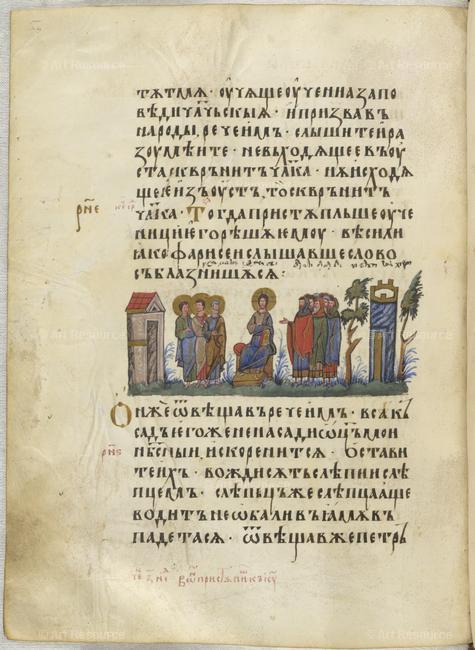 тѫтмѧ · оучѧще оученна запо
вѣди чл҃чьскыѧ · и призвавъ
народы, рече имъ · слышите и ра
зоумѣите · не въходѧщее въ оу
ста сквр҄нитъ чл҃ка · нѫ исходѧ
щее изъ оустъ, то сквр҄нитъ
чл҃ка · Тогда пристѫпльше оуче
ници его рѣшѫ емоу · вѣси ли
ꙗко фарисеи слышавше слово
съблазнишѫсѧ :
рн҃е
Онже ѿвѣщавъ рече имъ · всакъ
садъ егоже не насади ѡц҃ь мои
нб҃сныи, искоренитсѧ · Остави
те ихъ · вожди сѫтъ слѣпи слѣ
пцемъ · слѣпьць же слѣпца аще
водитъ не оба ли въ ꙗмѫ въ
падетасѧ · ѿвѣщавже петръ
рн҃ѕ